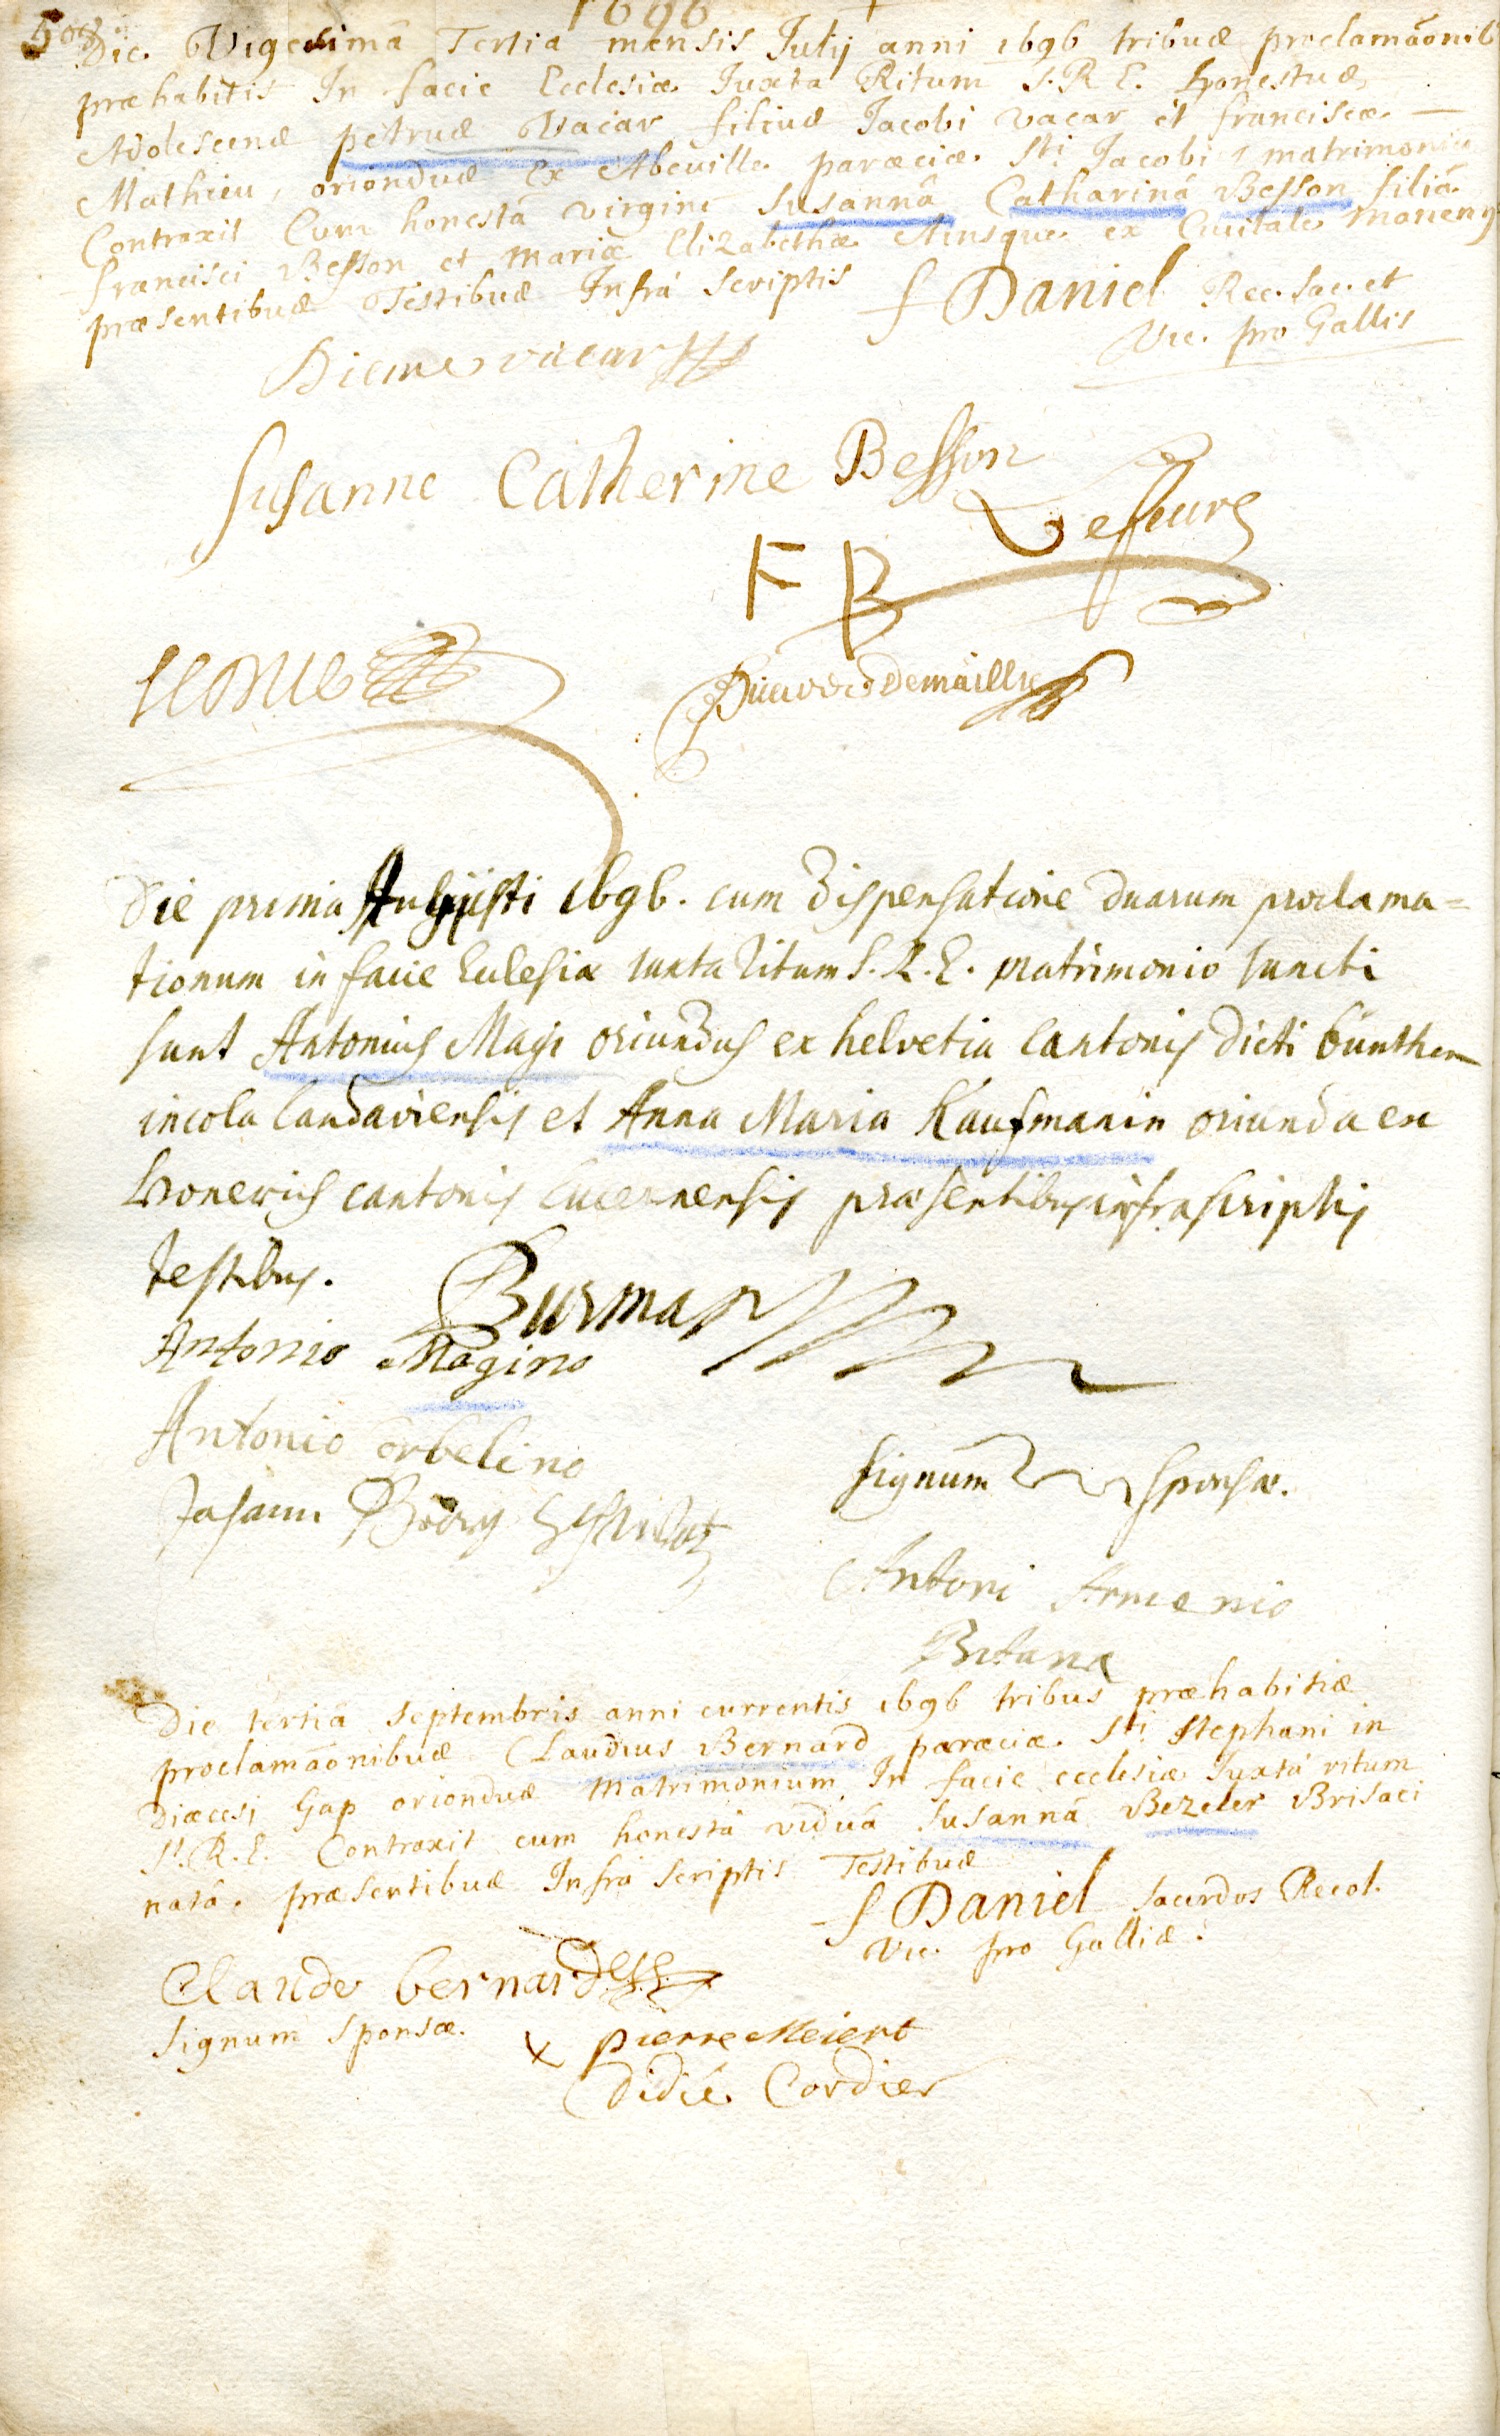 1696
Die Vigesimâ Tertia mensis Julij anni 1696 tribus proclamãonib
præhabitis In facie Ecclesiæ Juxta Ritum S. R E. honestus
Adolescens petrus Vacar filius Jacobi vacar et franciscæ —
Mathieu, oriondus Ex Abeuille paræciæ Sti Jacobi, matrimonium
Contraxit Cum honestâ virgine Susannâ Catharinâ Besson filiâ
francisci Besson et mariæ Elizabethæ ex Ciuitate
præsentibus Testibus Infrà scriptis f Daniel Rec. sac. et
Vic. pro Gallis
vacar
Susanne Catherine Besson
Lefeure
F B
Demailly
Die prima Augusti 1696. cum Dispensatione Duarum proclama=
tionum in facie Eclesiæ iuxta Ritum S. R. E. matrimonio iuncti
sunt Antonius Magi oriundus ex helvetia Cantonis Dicti bünthen
incola Landaviensis et Anna Maria Kaufmanin oriunda ex
cantonis Lucernensis præsentibus infra scriptis
testibus. Burman
Antonio Magino
Antonio Corbelino
signum sponsæ.
Antoni Armenio
Die tertiâ septembris anni currentis 1696 tribus præhabitis
proclamãonibus Claudius Bernard paræciæ Sti stephani in
Diæcesi Gap oriondus Matrimonium In facie ecclesiæ Juxtà ritum
S. R. E. Contraxit cum honestâ viduâ Susannâ Bezeler Brisaci
natâ. præsentibus Infrà scriptis Testibus
f Daniel sacerdos Recol.
Vic. pro Galliæ.
Claude bernard
signum sponsæ. x pierre Meiert
Didié Cordier